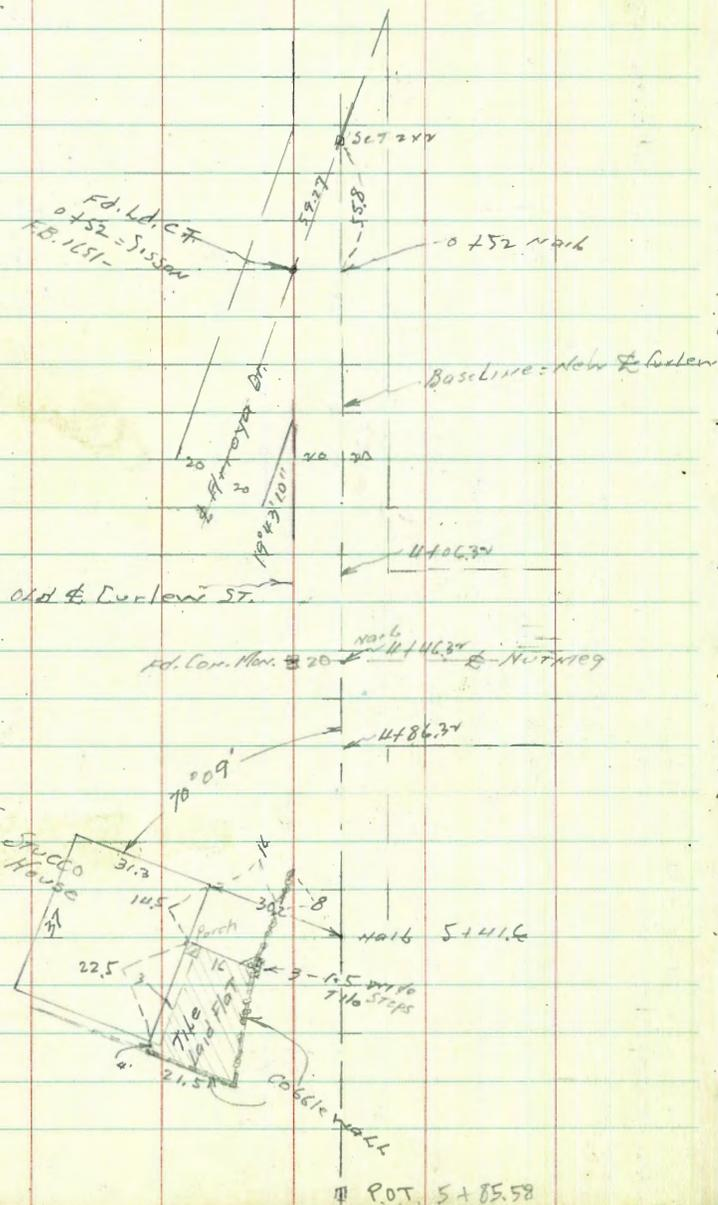 Set 2x2
59.27
55.8
Fd. Ld. & T.
0+52 = Sisson
F.B. 1651-
0+52 Nail
Baseline = New ℄ Curlew
℄ Arroya Dr.
20
20
20 20
19°43'10"
4+06.32
Old ℄ Curlew St.
Nail
Fd. Con. Mon. 20 4+46.32 ℄ Nutmeg
4+86.32
70°09'
Stucco
House
31.3
16
14.5
30.2
8
37
Porch
Nail 5+41.6
22.5
3
16
3-1.5 wide
Tile Steps
Tile
Laid Flat
4
21.5
Cobble Wall
P.O.T. 5+85.58